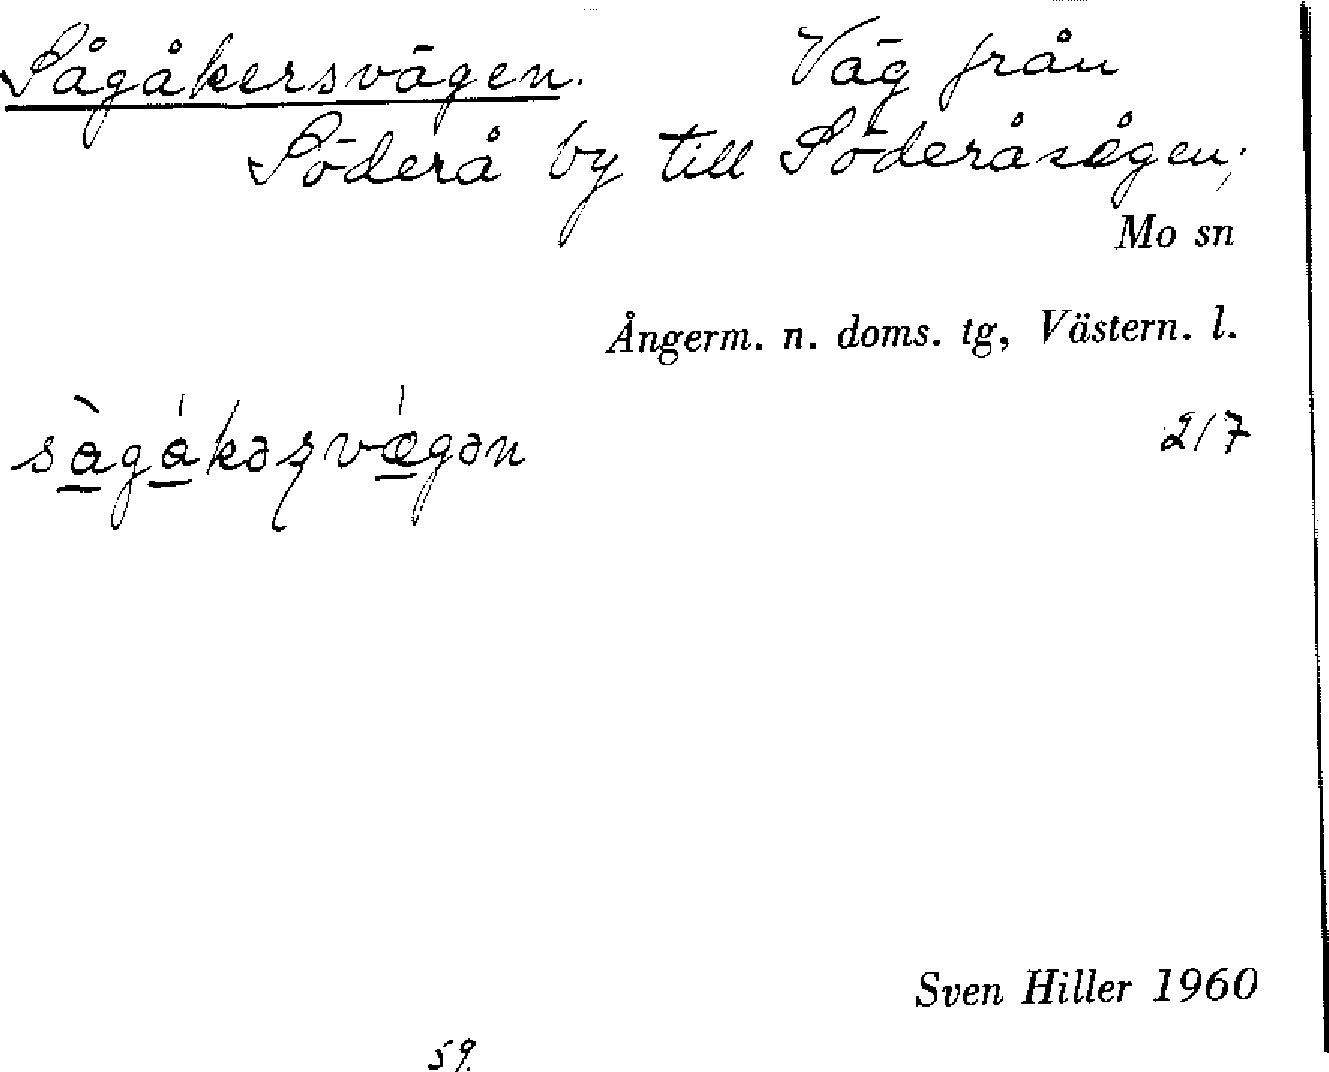 Sågåkersvägen. Väg från
Söderå by till Söderåsågen;
Mo sn
Ångerm. n. doms. tg, Västern. l.
sàgákəʂvǽgən 2/7
Sven Hiller 1960
59.